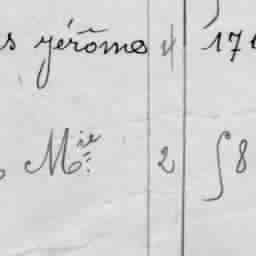 s jérôme 4 17
Mie 2 8